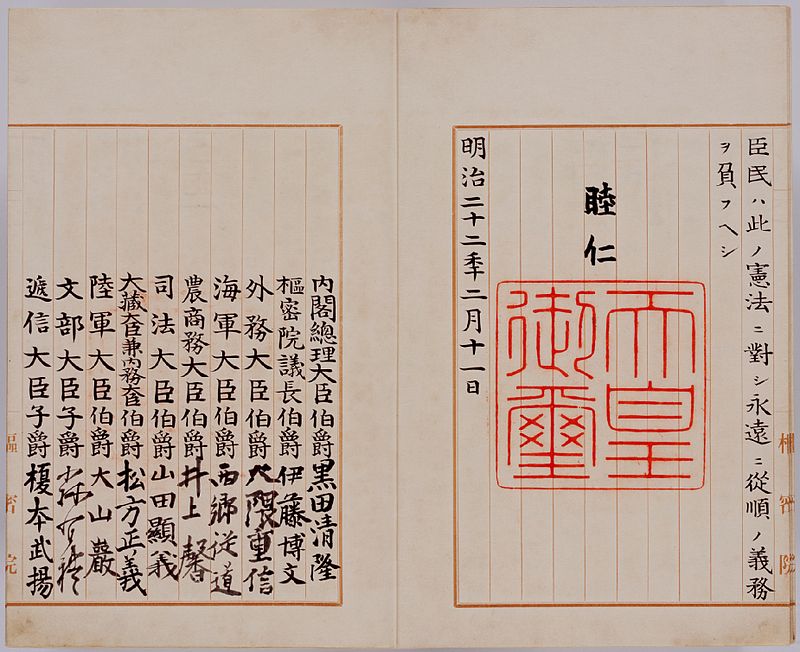 臣民ハ此ノ憲法ニ對シ永遠ニ從順ノ義務
ヲ負フヘシ
睦仁
天皇
御璽
明治二十二年二月十一日
內閣總理大臣伯爵黑田清隆
樞密院議長伯爵伊藤博文
外務大臣伯爵大隈重信
海軍大臣伯爵西鄉從道
農商務大臣伯爵井上馨
司法大臣伯爵山田顯義
大藏大臣兼內務大臣伯爵松方正義
陸軍大臣伯爵大山巖
文部大臣子爵森有禮
遞信大臣子爵榎本武揚
樞密院